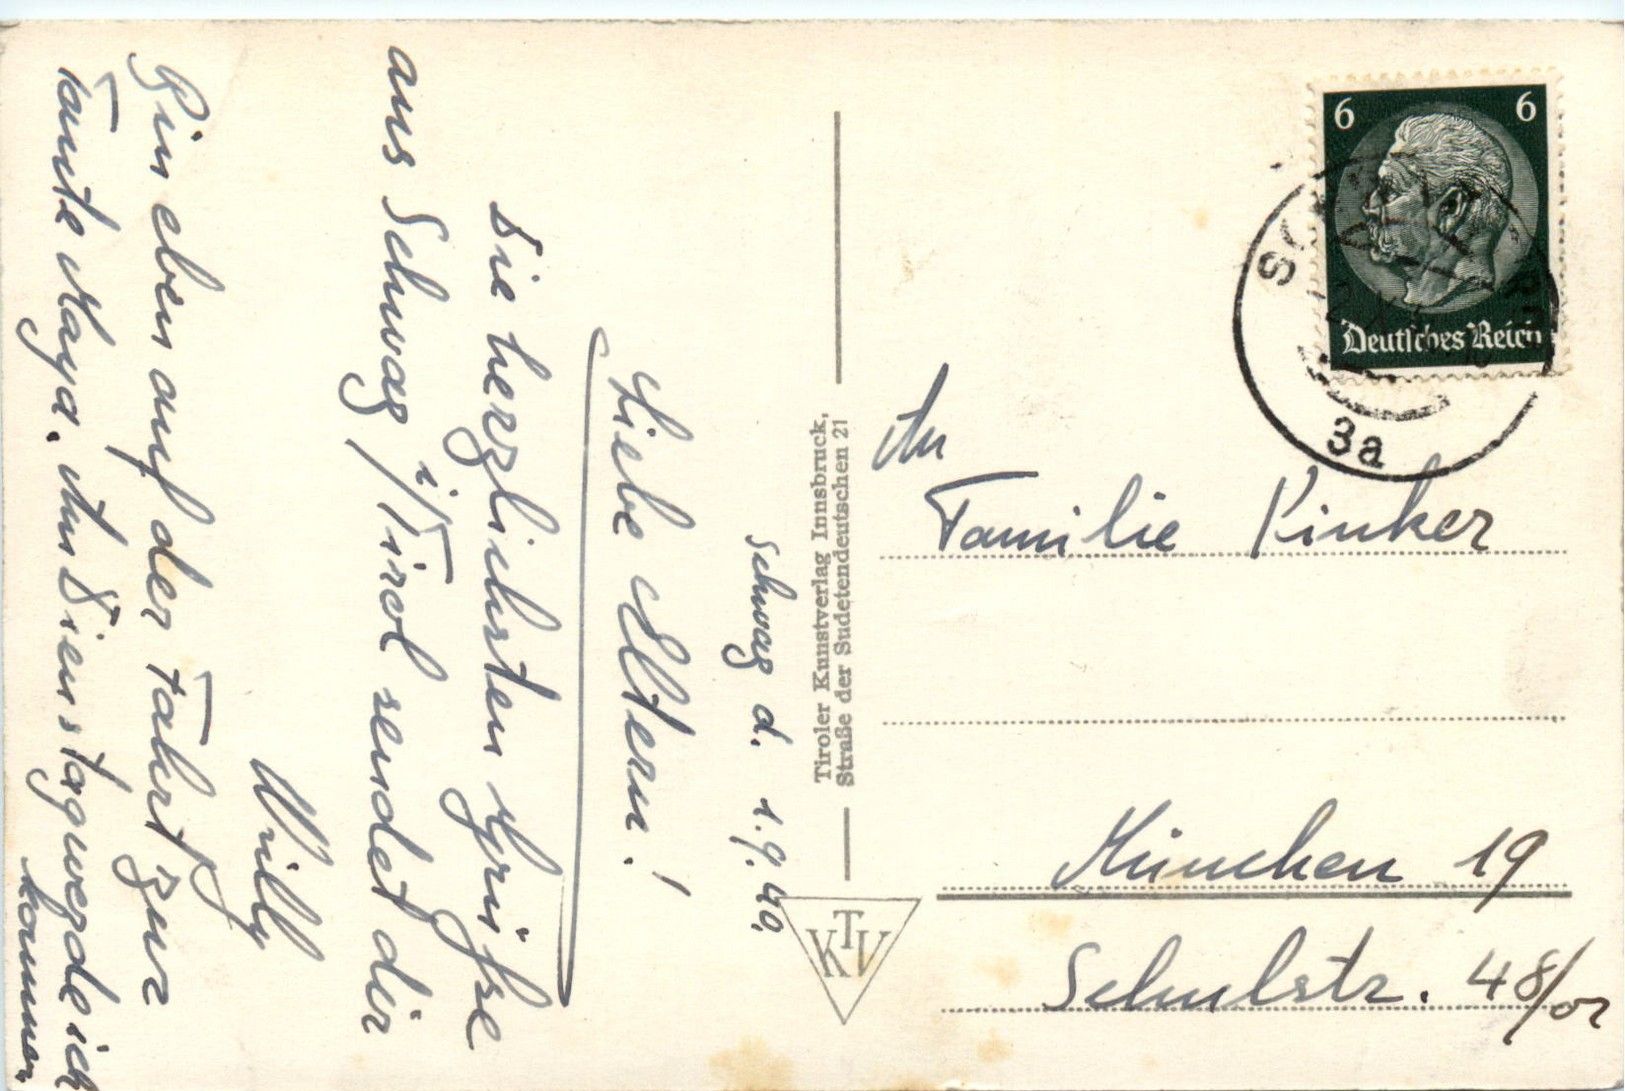 Schwag d. 1.9.40.
Liebe Eltern!
Die herzlichsten Grüße
aus Schwag i/Tirol sendet dir
Willy
Bin eben auf der Fahrt zur
Tante Maya. Am Dienstag werde ich
kommen.
Tiroler Kunstverlag Innsbruck,
Straße der Sudetendeutschen 21
KTV
6 6
Deutsches Reich
3a
An
Familie Pinker
München 19
Schulstr. 48/or